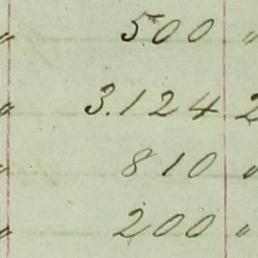 " 500 "
" 3.124 2
" 810 "
" 200 "